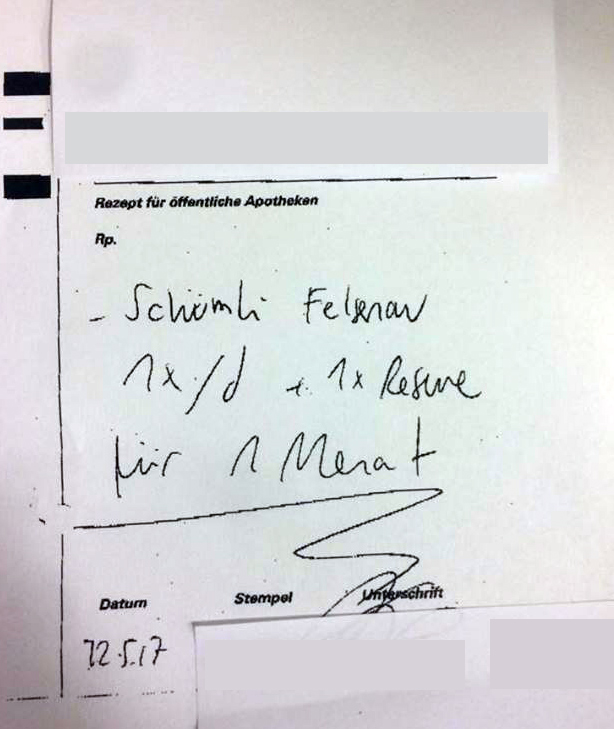 Rezept für öffentliche Apotheken
Rp.
- Schümli Felsenau
1x/d + 1x Reserve
für 1 Monat
Datum Stempel Unterschrift
12.5.17